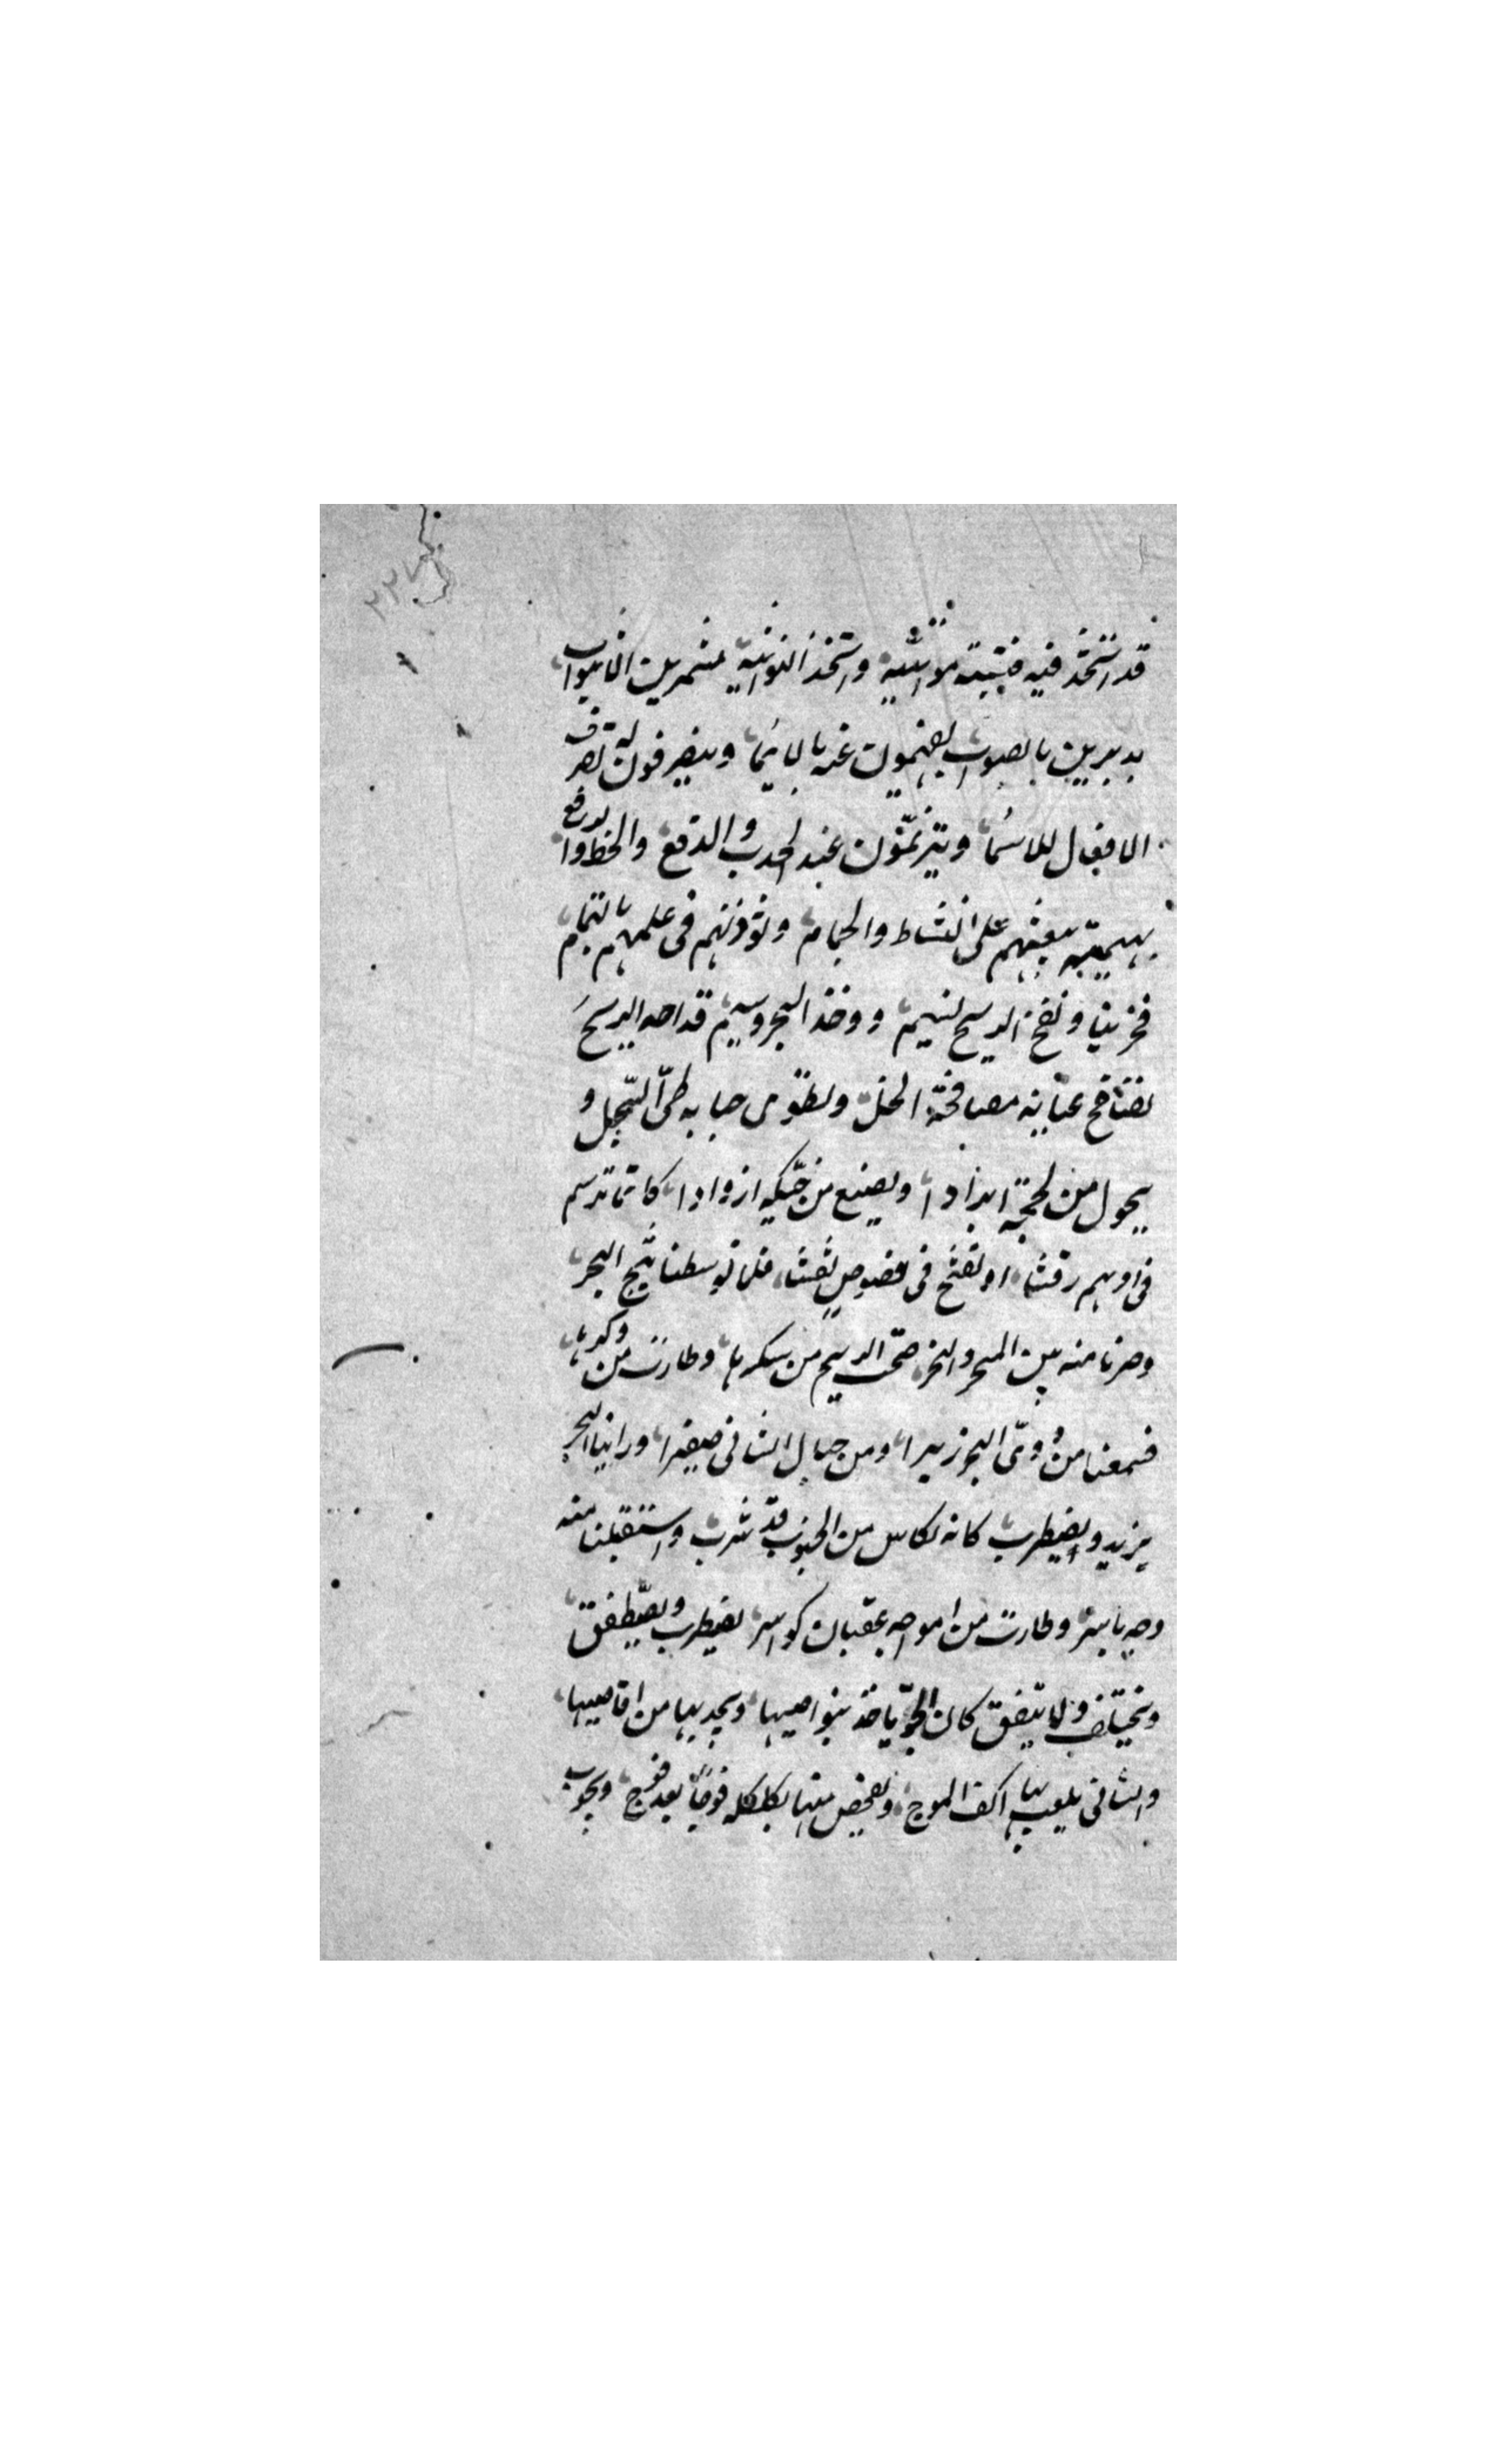 قد اتخذ فيه مواشيه واتخذ النواتية مشمرين الاثواب
مديرين بالصواب يفهمون عنه بالايماء وينصرفون له تصرف
الافعال للاسماء ويترنمون عند الجذب والدفع والحط والرفع
بهيمنة تبعثهم على النشاط والجمام وتؤذنهم في عملهم بالتمام
فخرجنا ونفح الريح نسيم ووجه البحر وسيم قد راحه الريح
تصافح عبابه مصافحة الخل وتطوي جنابه طي السجل و
يجول من لججه ابرادا ويصنع من حبكه ازرادا كانما ترسم
في اديم رقشا او تفتح في فصوص نقشا فلما توسطنا ثبج البحر
وصرنا منه بين السحر والنحر صحت الريح من سكرها وطارت من وكرها
فسمعنا من دوي البحر زئيرا ومن جبال الشاني صفيرا وراينا البحر
يزبد ويضطرب كانه بكاس من الجنون قد شرب واستقبلنا منه
وجه باسر وطارت من امواجه عقبان كواسر يضطرب ويصطفق
ويختلف ولا يتفق كان الجو ياخذ بنواصيها ويجذبها من اقاصيها
والشاني يلعب بها اكف الموج ويفحص منها بكلكله فوجا بعد فوج ويجوب